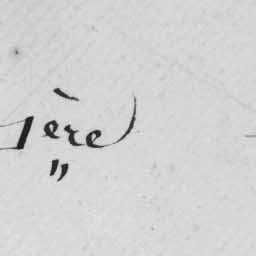 1ère
"